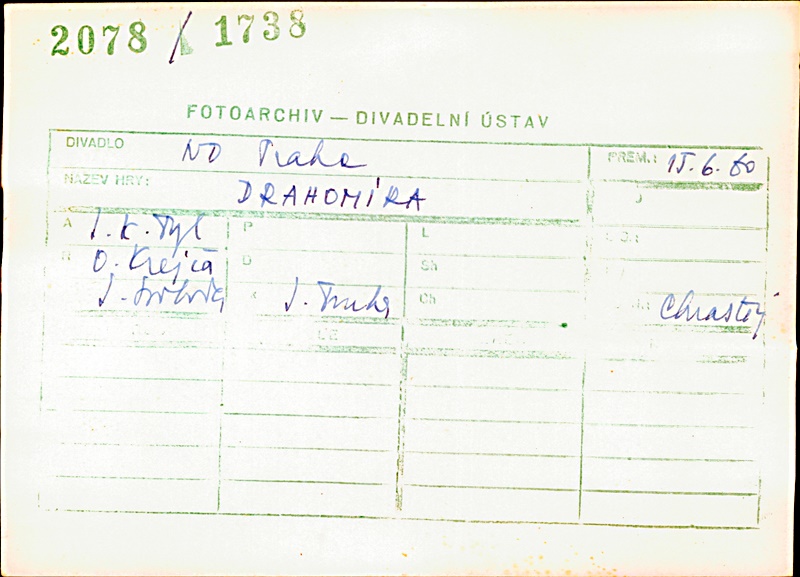 2078 / 1738
FOTOARCHIV — DIVADELNÍ ÚSTAV
DIVADLO ND Praha PREM.: 15.6.60
NÁZEV HRY: DRAHOMÍRA
A J. K. Tyl P L
R O. Krejča D Sh
J. Svoboda K J. Trnka Ch Chrastný